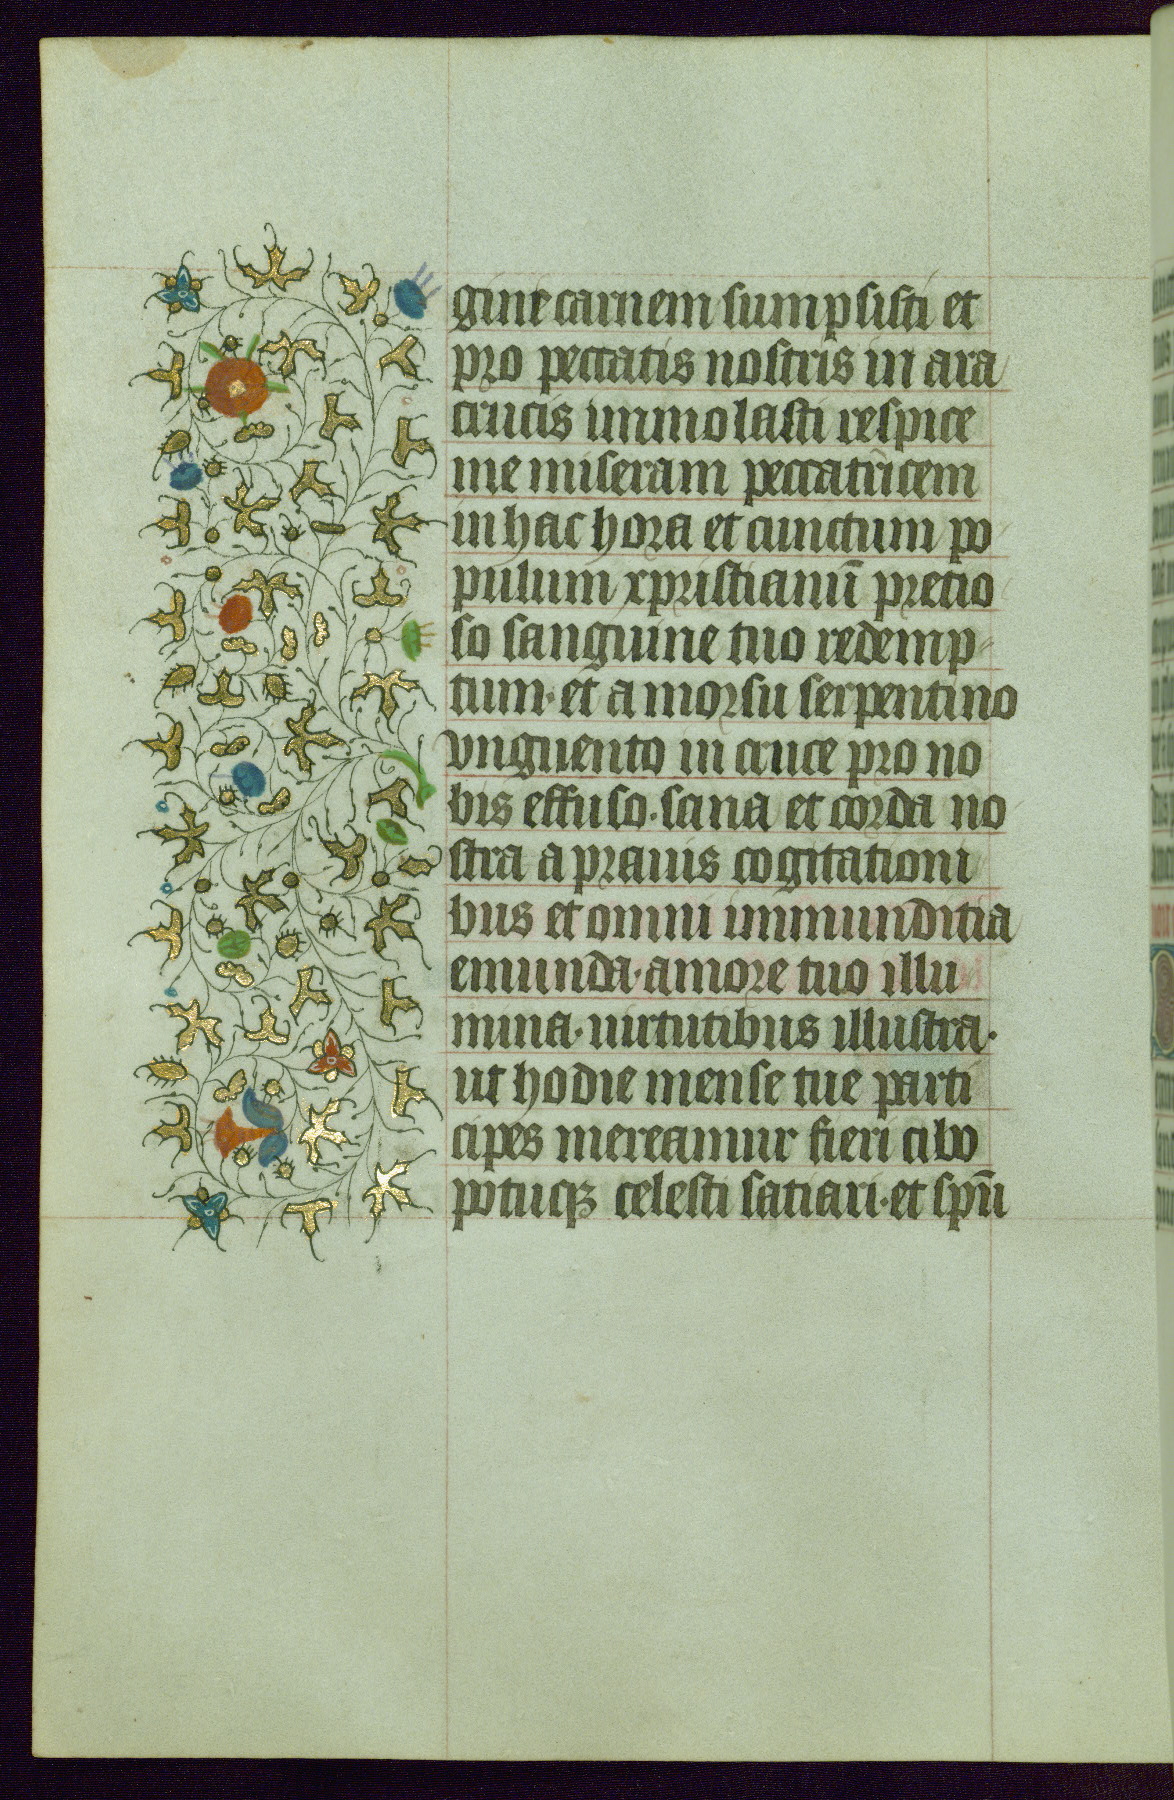 gine carnem sumpsisti et
pro peccatis nostris in ara
crucis immolasti respice
me miseram peccatricem
in hac hora et cunctum po
pulum xpristianū precio
so sanguine tuo redemp-
tum· et a morsu serpentino
vnguento in cruce pro no
bis effuso· sana et corda no
stra a prauis cogitationi
bus et omni immundicia
emunda· amore tuo illu
mina· uirtutibus illustra·
ut hodie mense tue parti
cipes mereamur fieri cibo
potuqꝫ celesti satiari· et spūi